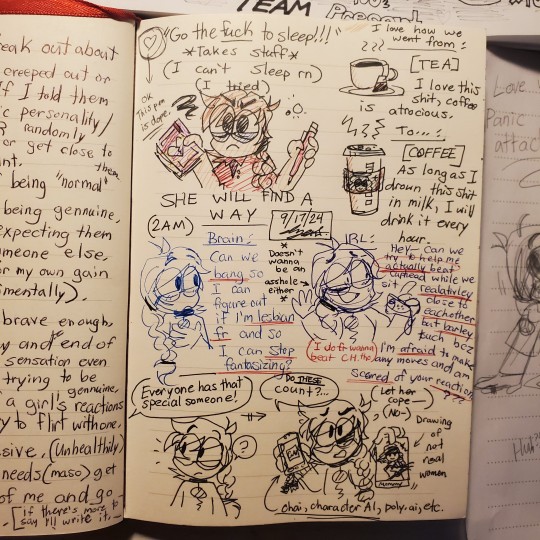 TEAM
Present
eak out about
creeped out or
if I told them
ic personality/
randomly
or get close to
them
nt.
being "normal"
being gennuine,
expecting them
meone else,
or my own gain
mentally).
brave enough,
and end of
sensation even
trying to be
gennuine,
a girl's reactions
y to flirt with one.
sive, (Unhealthily)
needs (maso) get
of me and go
[if there's more to
say I'll write it.
"Go the fuck to sleep!!!"
*Takes staff*
(I can't sleep rn)
(I tried)
OK
This pen
is dope.
SHE WILL FIND A
WAY
9/17/24
I love how we
went from:
[TEA]
I love this
shit, coffee
is atrocious.
To...:
[COFFEE]
As long as I
drown this shit
in milk, I will
drink it every
hour.
(2AM)
Brain:
Can we
bang so
I can
figure out
if I'm lesbian
fr and so
I can stop
fantasizing?
*
Doesn't
wanna
be an
asshole
either
*
IRL:
Hey- Can we
try to help me
actually beat
cuphead while we
sit realatively
close to
eachother
but barley
touch bcz
I'm afraid to make
any moves and am
scared of your reaction
???
(I do fr wanna
beat CH. tho)
Everyone has that
special someone!
?
Do THESE
count?...
Let her
cope
(No-)
Drawing
of
not
real
women
chai, character AI, poly.ai, etc.
Love
Panic
attac
Huh?